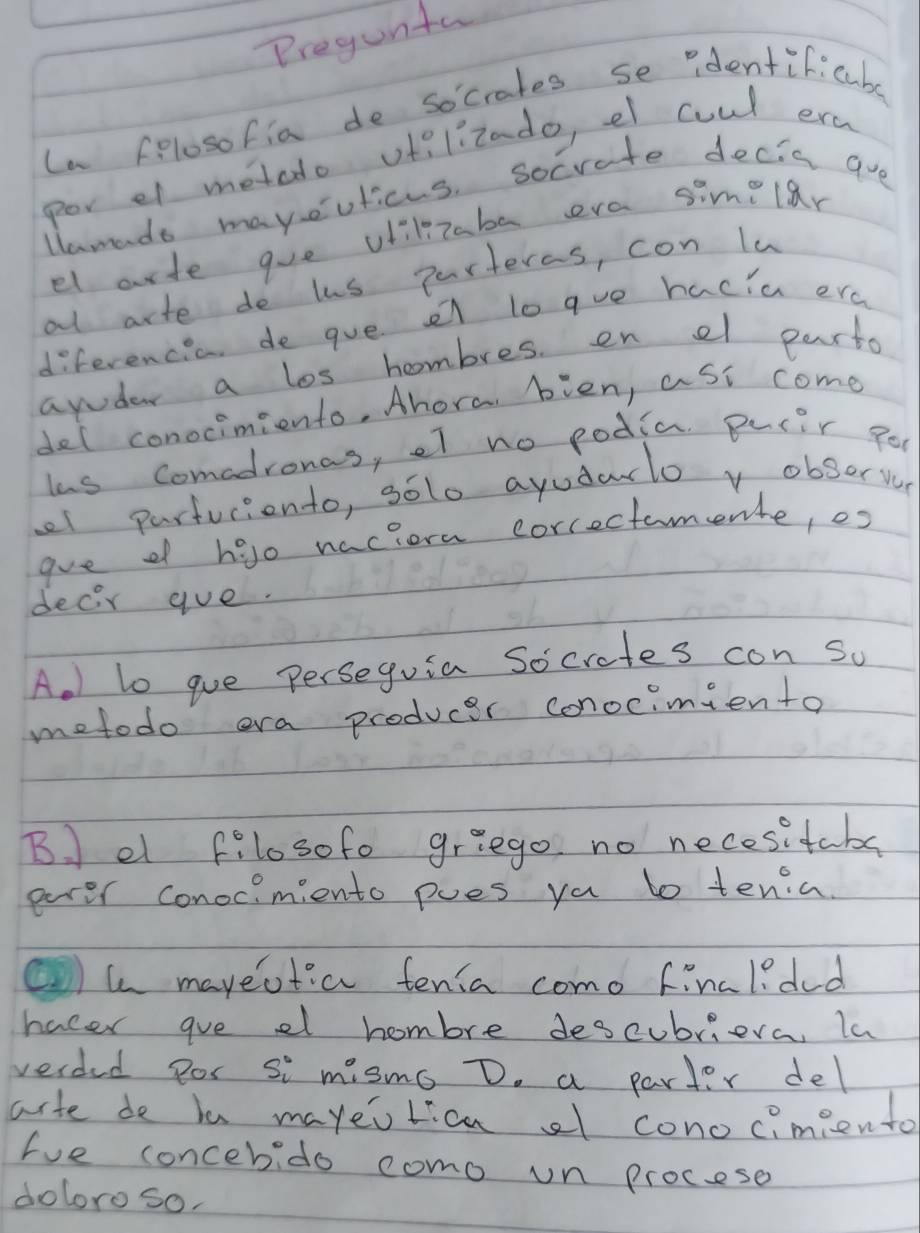 Pregunta
La filosofía de sócrates se identificaba
por el metodo utilizado, el cual era
llamado mayéuticas. sócrate decía que
el arte que utilizaba era similar
al arte de las parteras, con la
diferencia de que él lo que hacía era
ayudar a los hoombres en el parto
del conocimiento. Ahora bien, así como
las comadronas, el no podía parir por
el parturiento, sólo ayudarlo y observar
que el hijo naciera correctamente, es
decir que.
A.) lo que perseguía Sócrates con su
metodo era producir conocimiento
B.) el filosofo griego no necesitaba
parir conocimiento pues ya lo tenia.
C.) la mayéutica tenía como finalidad
hacer que el hombre descubriera la
verdad por si mismo D. a partir del
arte de la mayéutica el conocimiento
fue concebido como un proceso
doloroso.